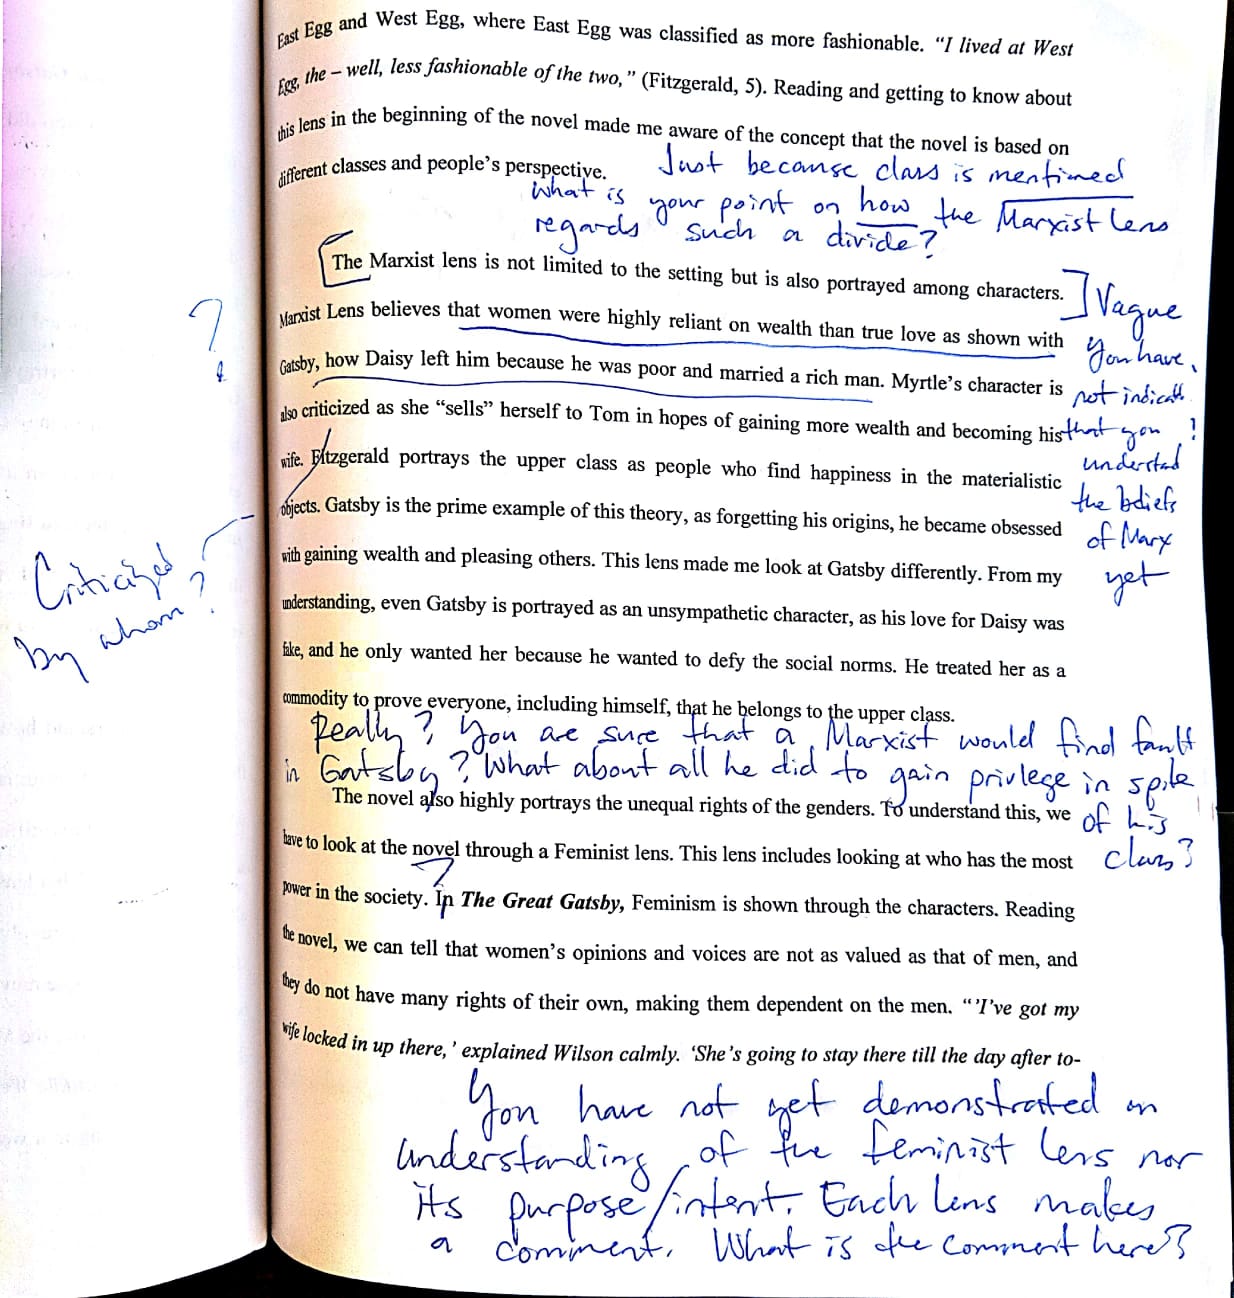 East Egg and West Egg, where East Egg was classified as more fashionable. "I lived at West
Egg, the – well, less fashionable of the two," (Fitzgerald, 5). Reading and getting to know about
this lens in the beginning of the novel made me aware of the concept that the novel is based on
different classes and people's perspective.
Just because class is mentioned
What is your point on how the Marxist lens
regards such a divide?
The Marxist lens is not limited to the setting but is also portrayed among characters.
Marxist Lens believes that women were highly reliant on wealth than true love as shown with
Gatsby, how Daisy left him because he was poor and married a rich man. Myrtle's character is
also criticized as she "sells" herself to Tom in hopes of gaining more wealth and becoming his
wife. Fitzgerald portrays the upper class as people who find happiness in the materialistic
objects. Gatsby is the prime example of this theory, as forgetting his origins, he became obsessed
with gaining wealth and pleasing others. This lens made me look at Gatsby differently. From my
understanding, even Gatsby is portrayed as an unsympathetic character, as his love for Daisy was
fake, and he only wanted her because he wanted to defy the social norms. He treated her as a
commodity to prove everyone, including himself, that he belongs to the upper class.
?
Vague
You have
not indicate
that you !
understand
the beliefs
of Marx
yet
Criticized
by whom?
Really? You are sure that a Marxist would find fault
in Gatsby? What about all he did to gain privlege in spite
of his
class?
The novel also highly portrays the unequal rights of the genders. To understand this, we
have to look at the novel through a Feminist lens. This lens includes looking at who has the most
?
power in the society. In The Great Gatsby, Feminism is shown through the characters. Reading
the novel, we can tell that women's opinions and voices are not as valued as that of men, and
they do not have many rights of their own, making them dependent on the men. "'I've got my
wife locked in up there,' explained Wilson calmly. 'She's going to stay there till the day after to-
You have not yet demonstrated an
understanding of the feminist lens nor
its purpose/intent. Each lens makes
a comment. What is the comment here?